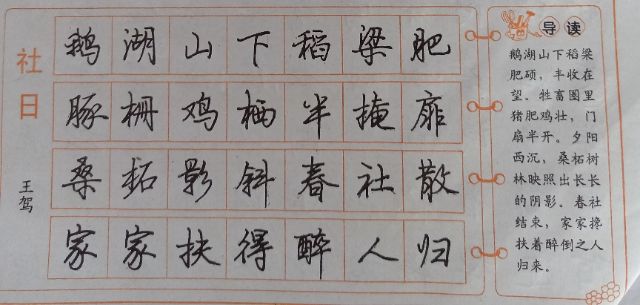 社日
王驾
鹅湖山下稻梁肥
豚栅鸡栖半掩扉
桑拓影斜春社散
家家扶得醉人归
导读
鹅湖山下稻梁
肥硕，丰收在
望。牲畜圈里
猪肥鸡壮，门
扇半开。夕阳
西沉，桑柘树
林映照出长长
的阴影。春社
结束，家家搀
扶着醉倒之人
归来。